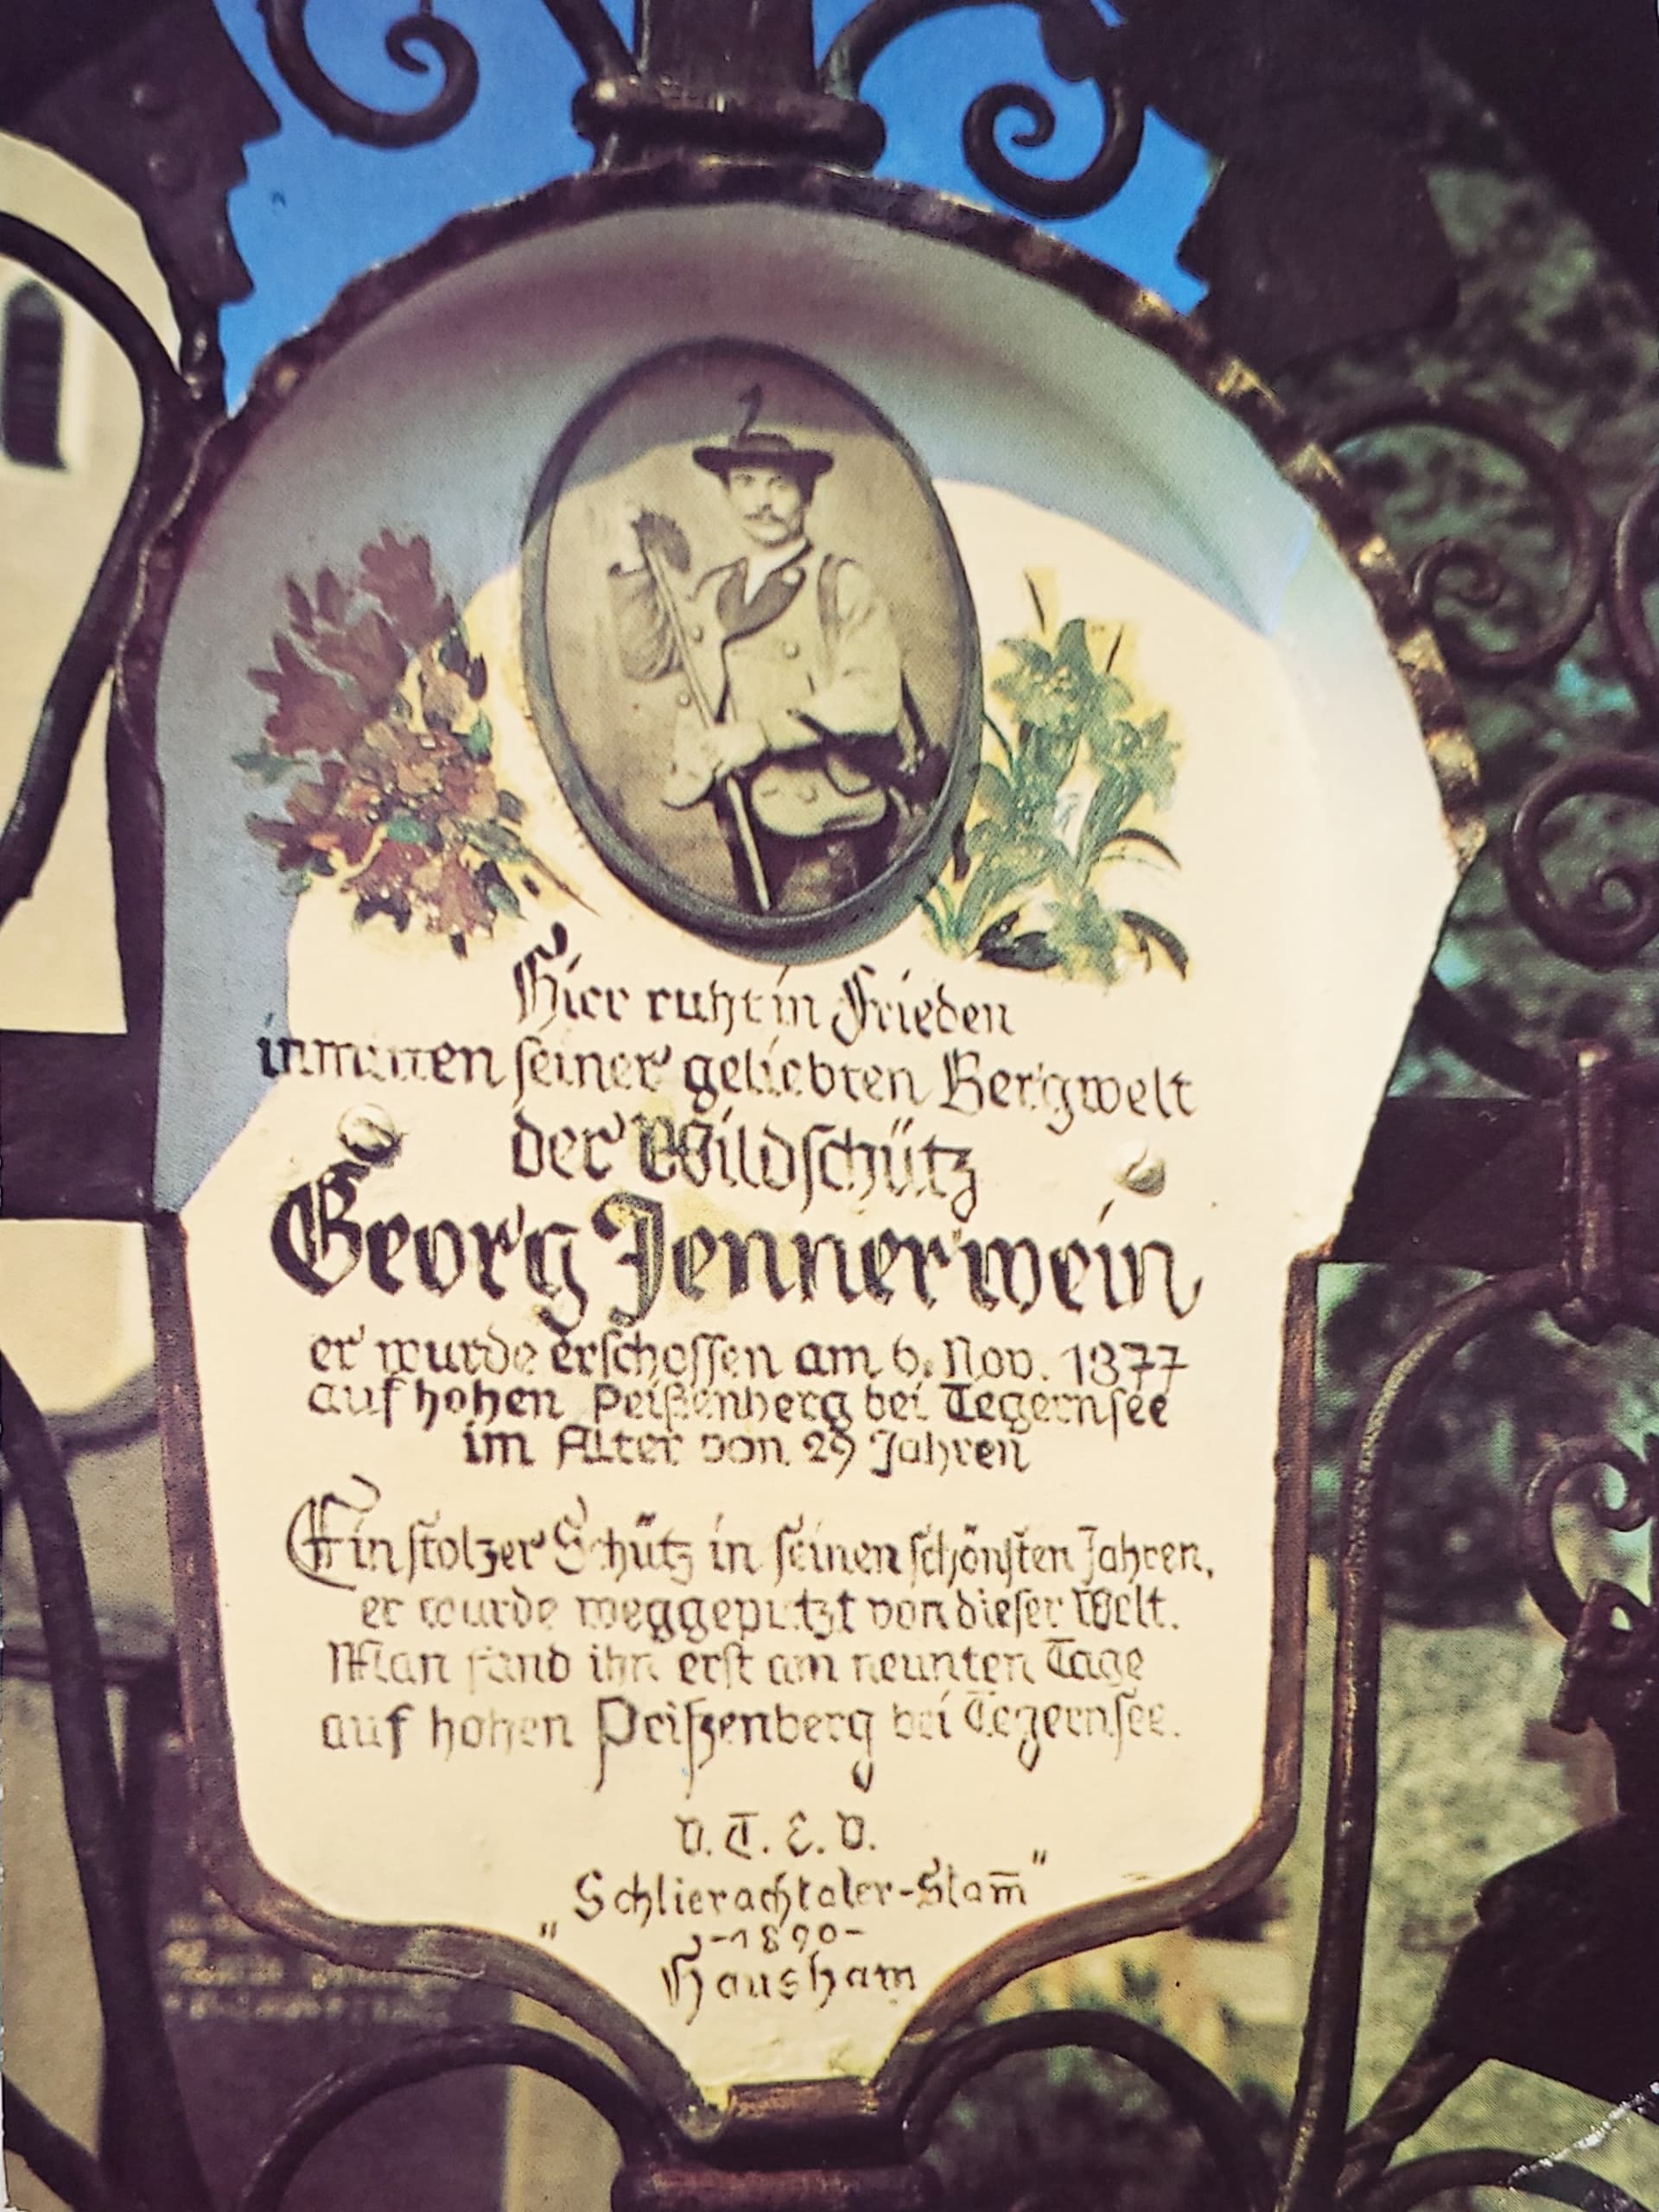 Hier ruht in Frieden
inmitten seiner geliebten Bergwelt
der Wildschütz
Georg Jennerwein
er wurde erschossen am 6. Nov. 1877
auf hohen Peißenberg bei Tegernsee
im Alter von 29 Jahren
Ein stolzer Schütz in seinen schönsten Jahren,
er wurde weggeputzt von dieser Welt.
Man fand ihn erst am neunten Tage
auf hohen Peißenberg bei Tegernsee.
V.T.E.V.
„Schlierachtaler-Stam̄"
-1890-
Hausham